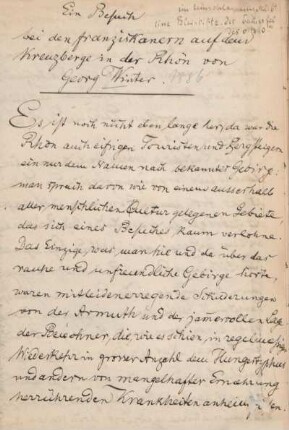 Ein Besuch
bei den Franziskanern auf dem
Kreuzberge in der Rhön von
Georg Winter. 1886
Es ist noch nicht den lange her, da war die
Rhön auch eifrigen Touristen und Bergsteigern
ein nur dem Namen nach bekanntes Gebirge,
man sprach davon wie von einem ausserhalb
aller menschlichen Cultur gelegenen Gebiete
das sich eines Besuches kaum verlohne.
Das Einzige, was man hie und da über das
rauhe und unfreundliche Gebirge hörte
waren mitleidenerregende Schilderungen
von der Armuth und der jammervollen Lage
der Bewohner, die, wie es schien, in regelmässiger
Wiederkehr in grosser Anzahl dem Hungertyphus
und andern von mangelhafter Ernährung
herrührenden Krankheiten